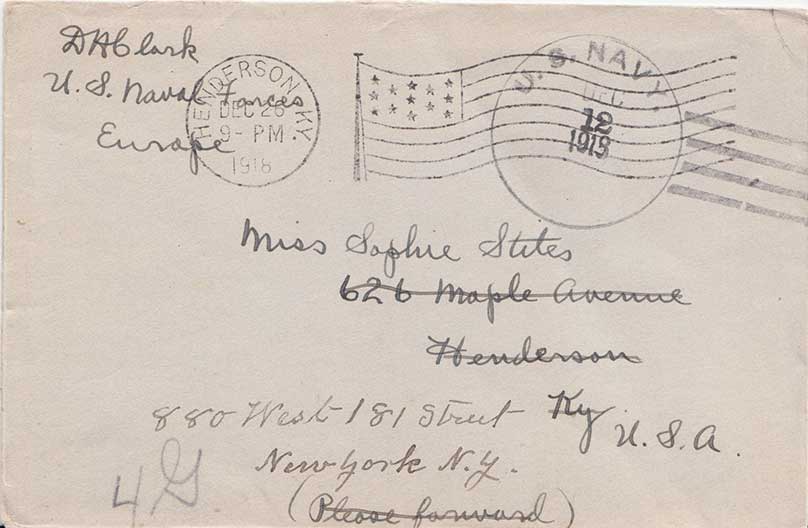 D H Clark
U. S. Naval Forces
Europe
HENDERSON KY.
DEC 26
9-PM
1918
U. S. NAVY
DEC
12
1918
Miss Sophie Stites
626 Maple Avenue
Henderson
Ky.
U. S. A.
880 West 181 Street
New York N.Y.
4G
(Please forward)